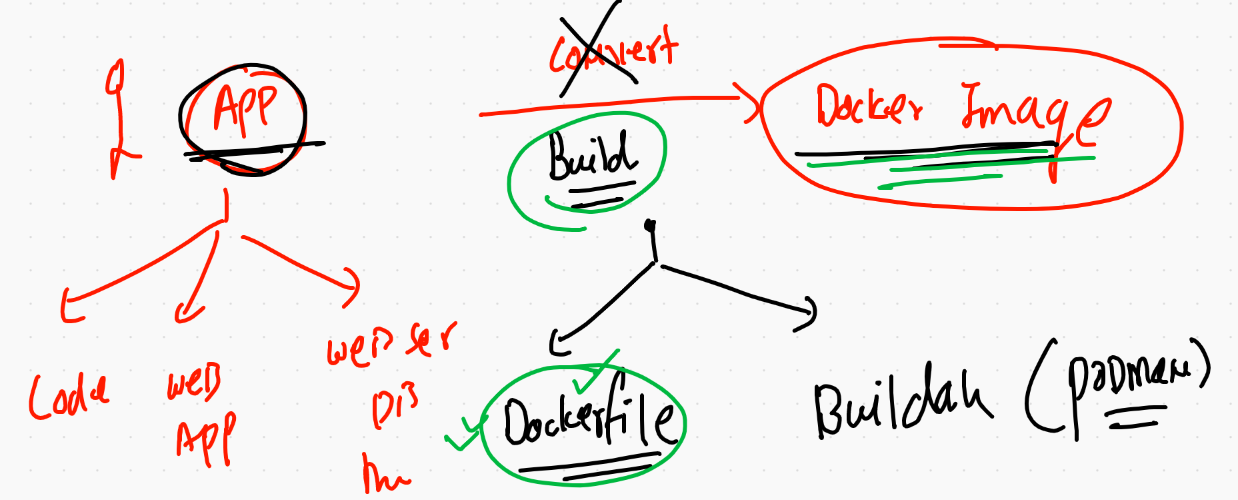 Convert
App
Docker Image
Build
Code
web
App
web ser
DB
Dockerfile
Buildah (podman)